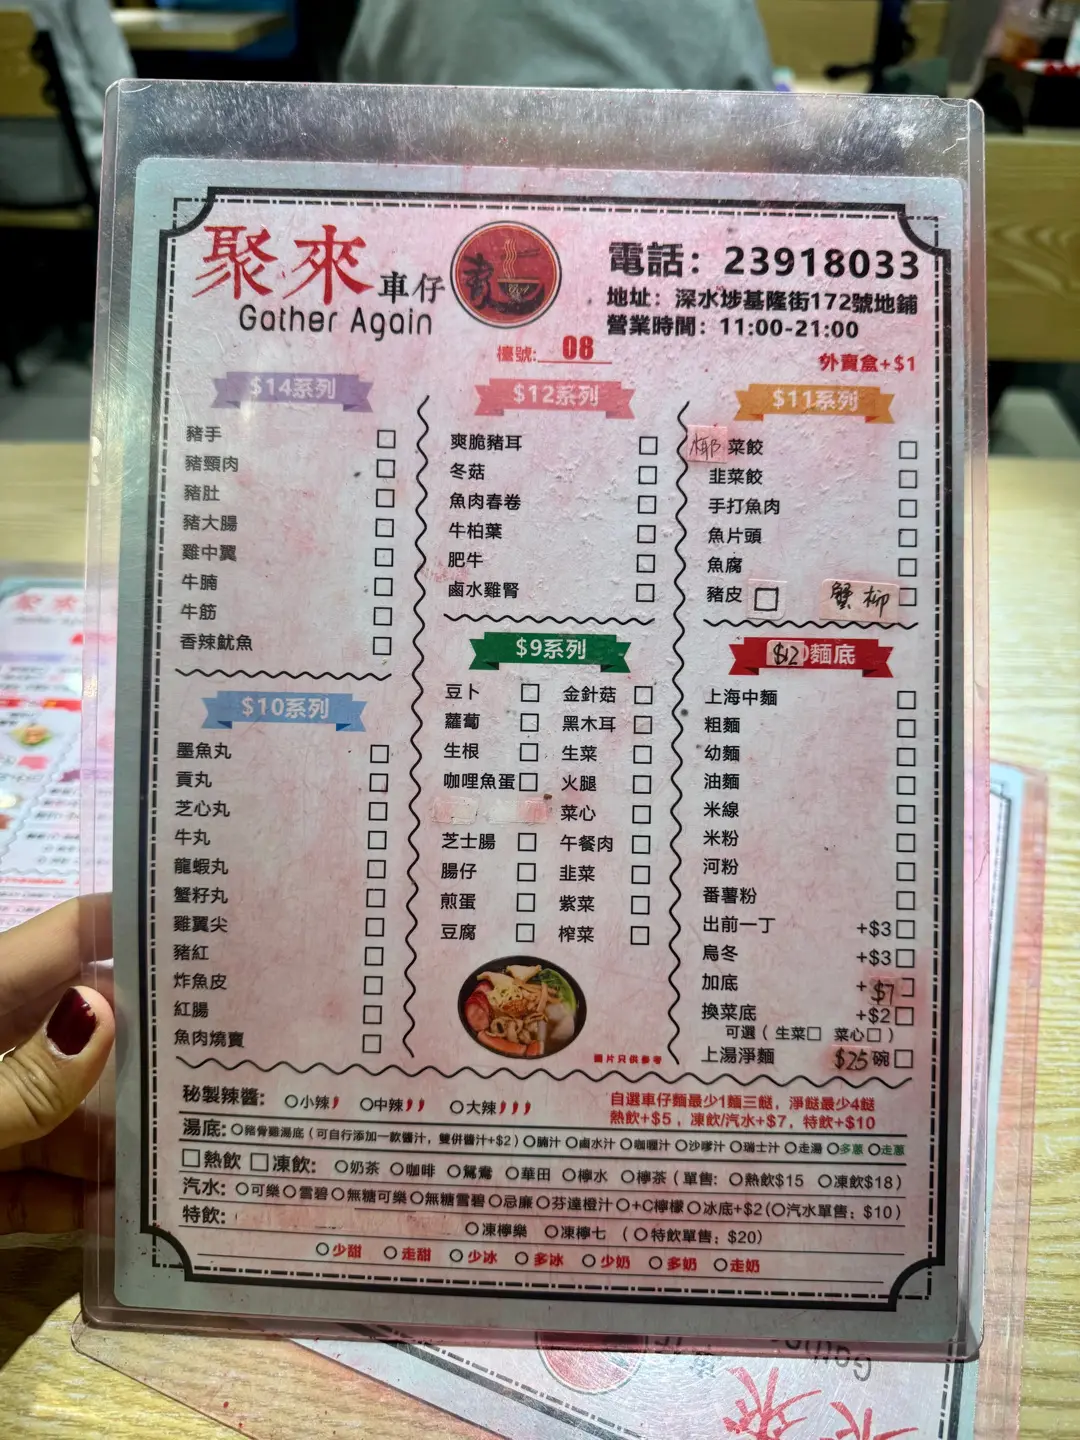 聚來 車仔
Gather Again
電話：23918033
地址：深水埗基隆街172號地鋪
營業時間：11:00-21:00
檯號: 08
外賣盒+$1
$14系列
豬手
豬頸肉
豬肚
豬大腸
雞中翼
牛腩
牛筋
香辣魷魚
$10系列
墨魚丸
貢丸
芝心丸
牛丸
龍蝦丸
蟹籽丸
雞翼尖
豬紅
炸魚皮
紅腸
魚肉燒賣
$12系列
爽脆豬耳
冬菇
魚肉春卷
牛柏葉
肥牛
鹵水雞腎
$9系列
豆卜 金針菇
蘿蔔 黑木耳
生根 生菜
咖哩魚蛋 火腿
菜心
芝士腸 午餐肉
腸仔 韭菜
煎蛋 紫菜
豆腐 榨菜
圖片只供參考
$11系列
椰菜餃
韭菜餃
手打魚肉
魚片頭
魚腐
豬皮 蟹柳
$12麵底
上海中麵
粗麵
幼麵
油麵
米線
米粉
河粉
番薯粉
出前一丁 +$3
烏冬 +$3
加底 +$7
換菜底 +$2
可選（生菜 菜心）
上湯淨麵 $25碗
秘製辣醬: 小辣 中辣 大辣
自選車仔麵最少1麵三餸，淨餸最少4餸
熱飲+$5，凍飲/汽水+$7，特飲+$10
湯底: 豬骨雞湯底（可自行添加一款醬汁，雙併醬汁+$2） 腩汁 鹵水汁 咖喱汁 沙嗲汁 瑞士汁 走湯 多蔥 走蔥
熱飲 凍飲: 奶茶 咖啡 鴛鴦 華田 檸水 檸茶（單售: 熱飲$15 凍飲$18）
汽水: 可樂 雪碧 無糖可樂 無糖雪碧 忌廉 芬達橙汁 +C檸檬 冰底+$2(汽水單售: $10)
特飲:
凍檸樂 凍檸七 （特飲單售: $20）
少甜 走甜 少冰 多冰 少奶 多奶 走奶